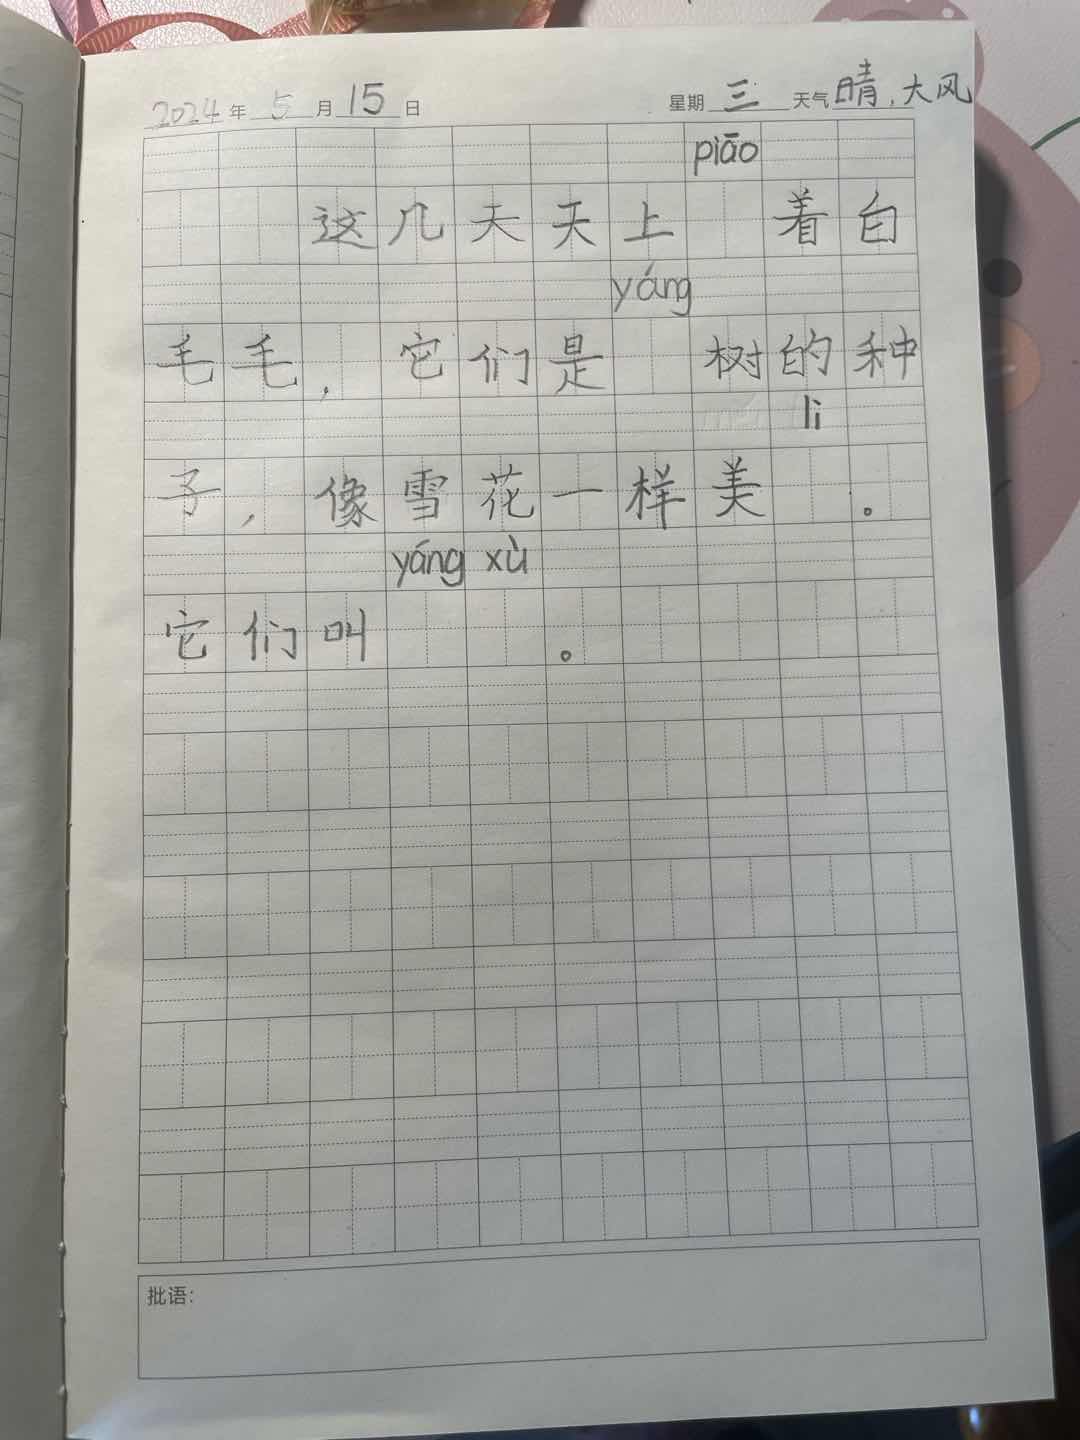 2024年5月15日 星期三 天气晴,大风
piāo
这几天天上 着白
yáng
毛毛,它们是 树的种
li
子,像雪花一样美 。
yáng xù
它们叫 。
批语: